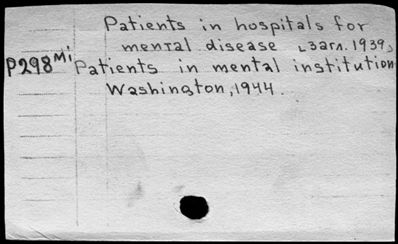 Patients in hospitals for
mental disease [Загл. 1939]
P298 Mi Patients in mental institution
Washington, 1944.